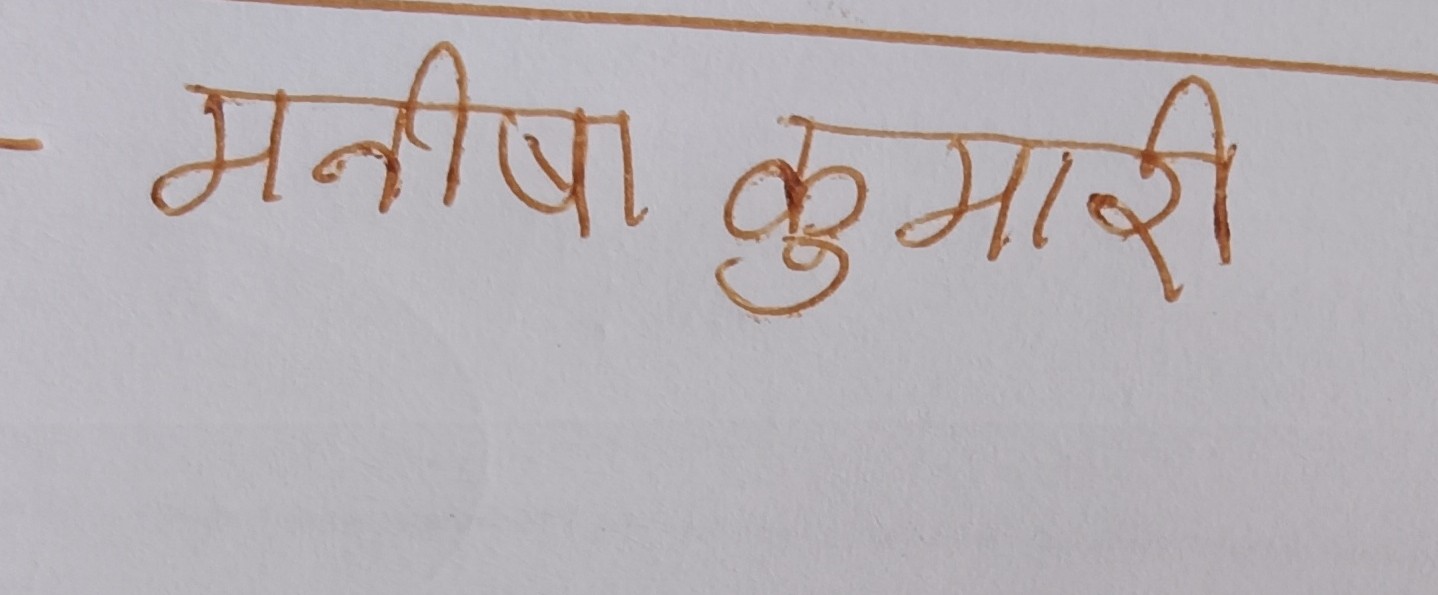 - मनीषा कुमारी